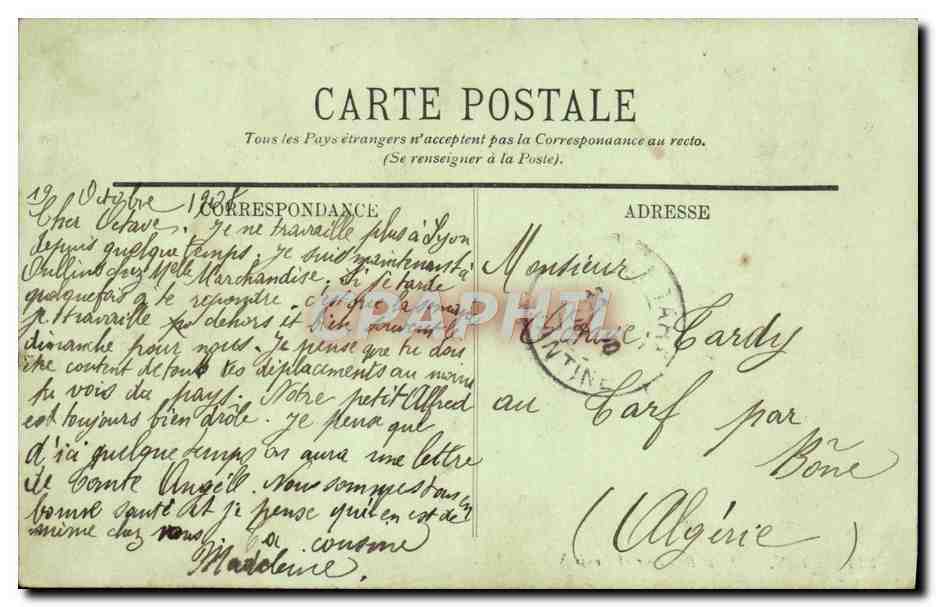 CARTE POSTALE
Tous les Pays étrangers n'acceptent pas la Correspondance au recto.
(Se renseigner à la Poste).
CORRESPONDANCE
19 Octobre
Cher Octave. Je ne travaille plus à Lyon
depuis quelque temps. Je suis maintenant à
Oullins chez Melle Marchandise. Si je tarde
quelquefois à te repondre c'est que la semaine
je travaille dehors et bien souvent le
dimanche pour nous. Je pense que tu dois
être content de tous tes déplacements au moins
tu vois du pays. Notre petit Alfred
est toujours bien drôle. Je pense que
d'ici quelque temps on aura une lettre
de Tante Angèle. Nous sommes tous en
bonne santé et je pense qu'il en est de
même chez vous. Ta cousine
Madeleine.
ADRESSE
Monsieur
Octave Tardy
au Tarf par
Bône
(Algérie)
CPAPHIL